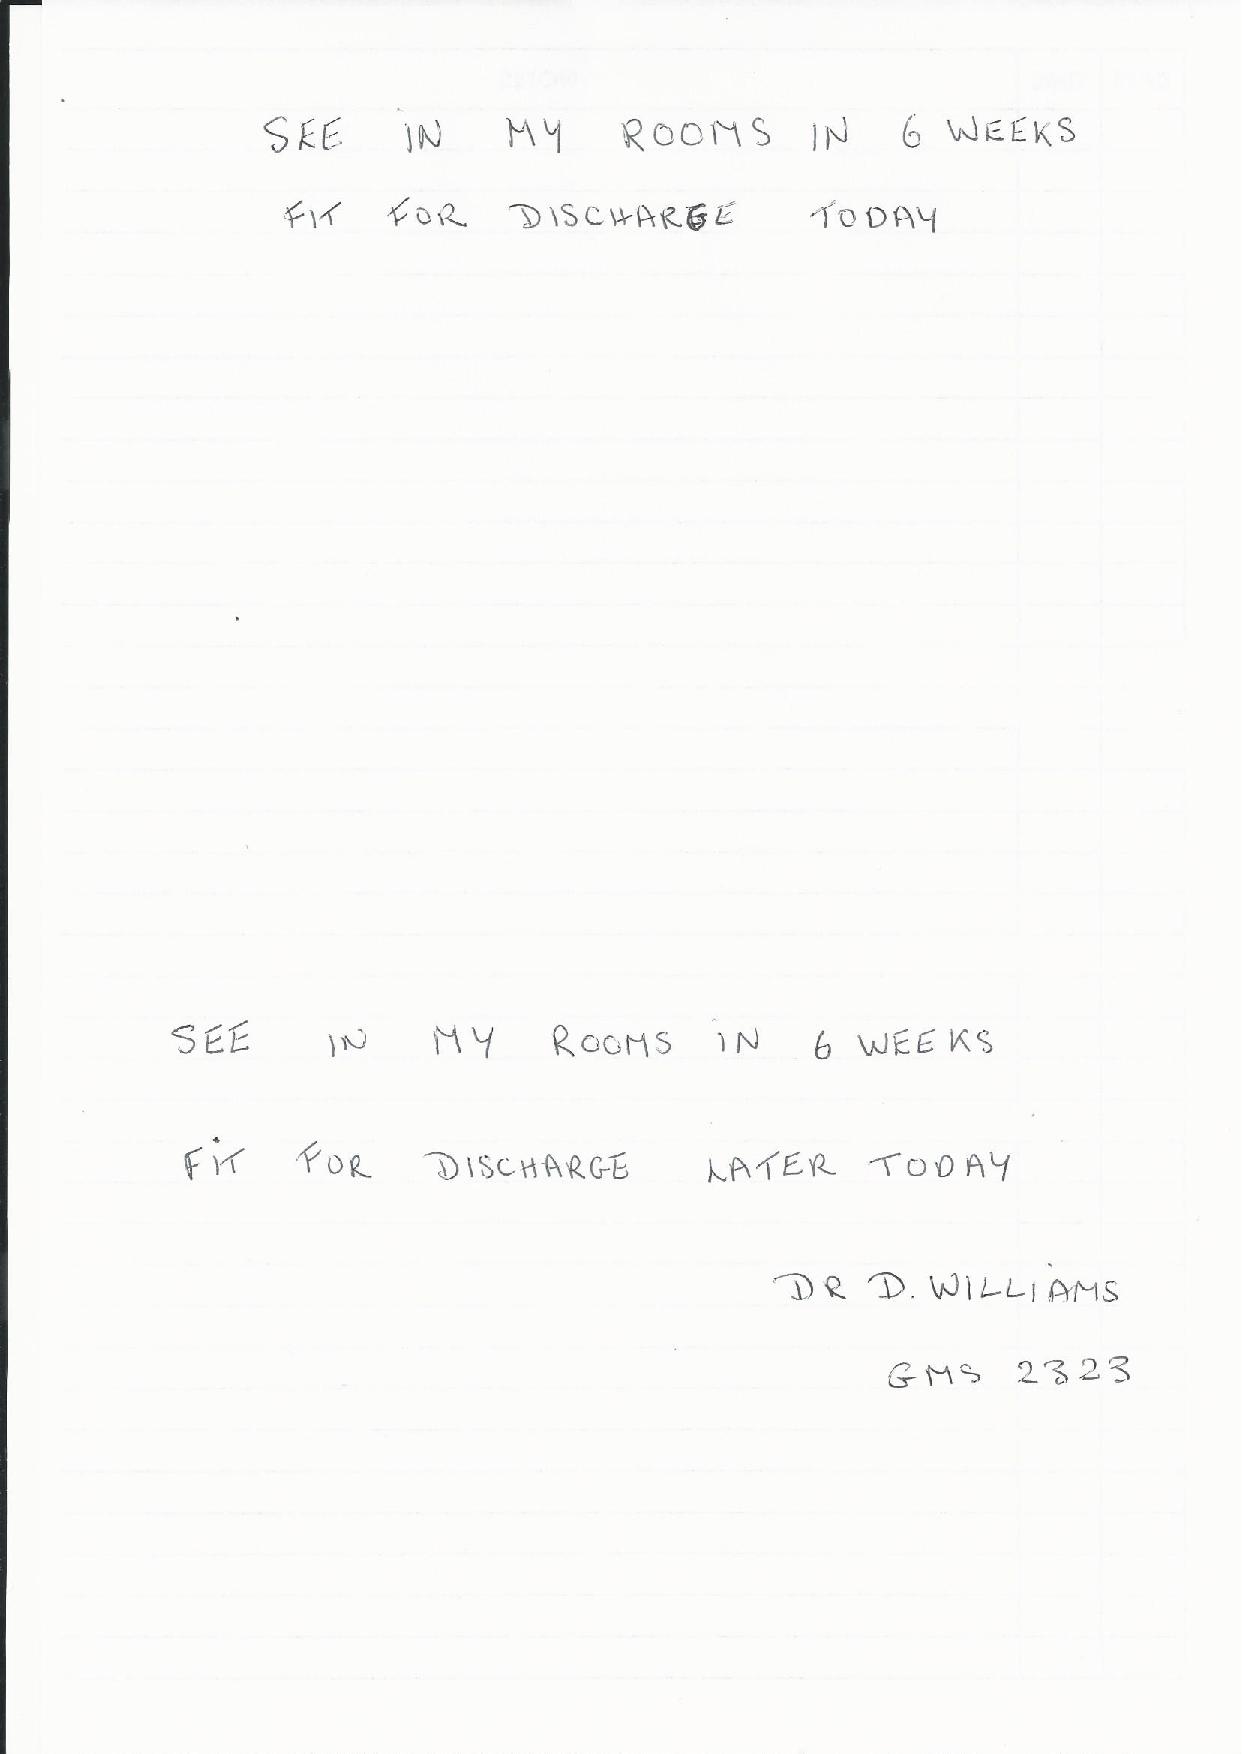 SEE IN MY ROOMS IN 6 WEEKS
FIT FOR DISCHARGE TODAY
SEE IN MY ROOMS IN 6 WEEKS
FIT FOR DISCHARGE LATER TODAY
DR D. WILLIAMS
GMS 2323